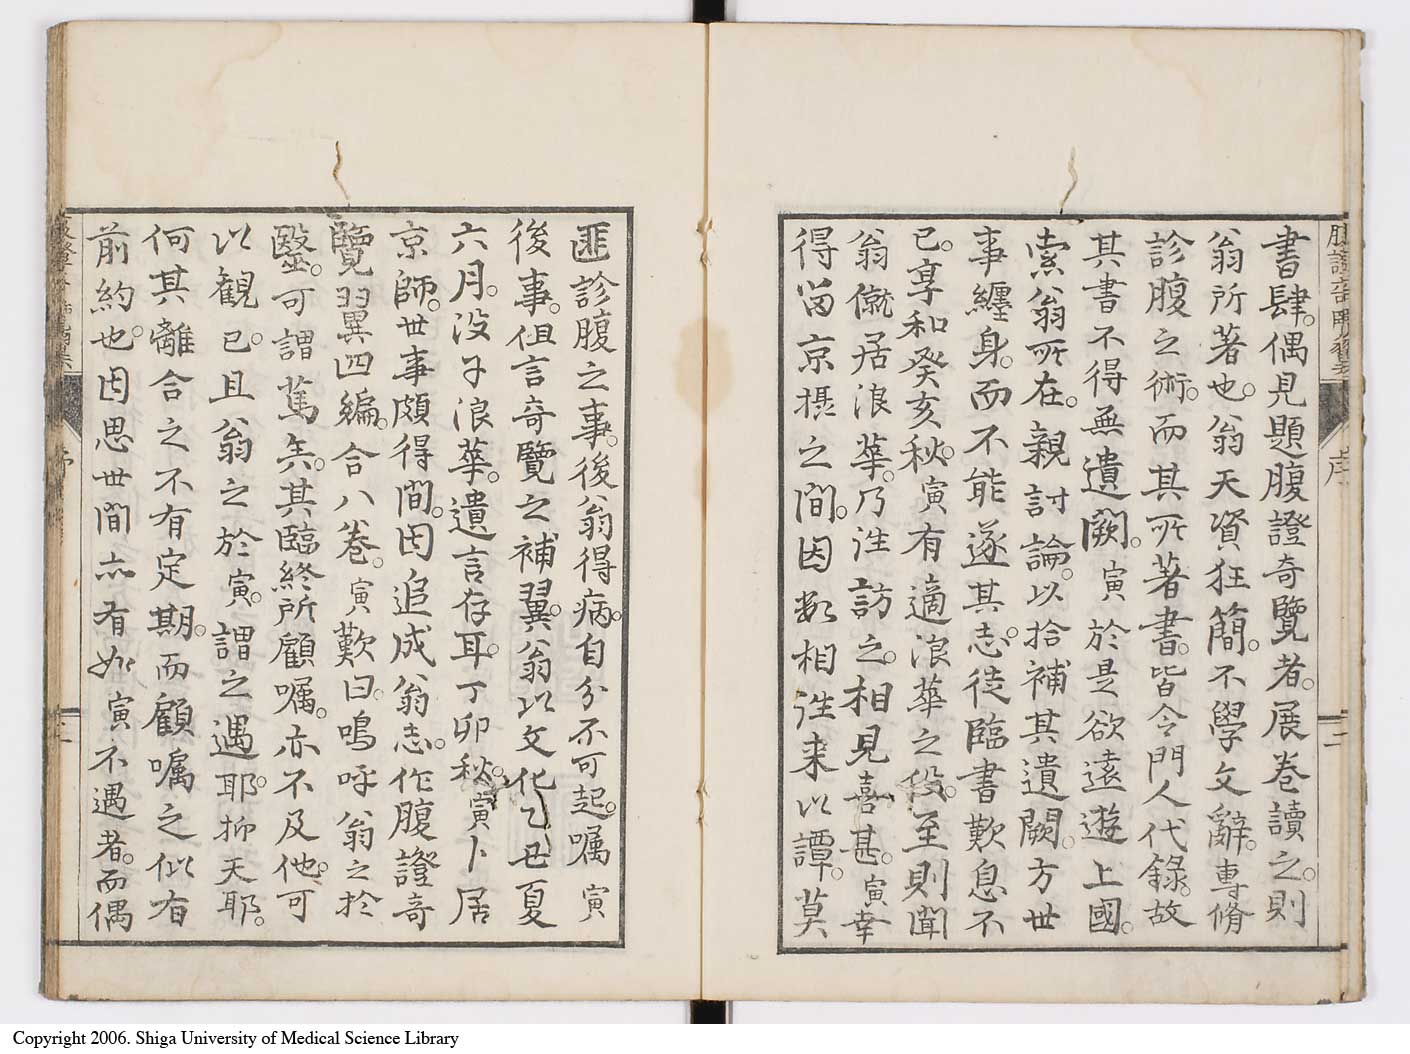 書肆。偶見題腹證奇覽者。展卷讀之。則
翁所著也。翁天資狂簡。不學文辭。專脩
診腹之術。而其所著書。皆令門人代錄。故
其書不得無遺闕。寅於是欲遠遊上國。
索翁所在。親討論。以拾補其遺闕。方世
事纏身。而不能遂其志。徒臨書歎息不
已。享和癸亥秋。寅有適浪華之役。至則聞
翁僦居浪華。乃往訪之。相見喜甚。寅幸
得留京攝之間。因數相往来以譚。莫
匪診腹之事。後翁得病。自分不可起。囑寅
後事。但言奇覽之補翼。翁以文化乙丑夏
六月。没于浪華。遺言存耳。丁卯秋。寅卜居
京師。世事頗得間。因追成翁志。作腹證奇
覽翼四編。合八卷。寅歎曰。嗚呼翁之於
毉。可謂篤矣。其臨終所顧囑。亦不及他。可
以觀已。且翁之於寅。謂之遇耶。抑天耶。
何其離合之不有定期。而顧囑之似有
前約也。因思世間亦有如寅不遇者。而偶
序
二
Copyright 2006. Shiga University of Medical Science Library